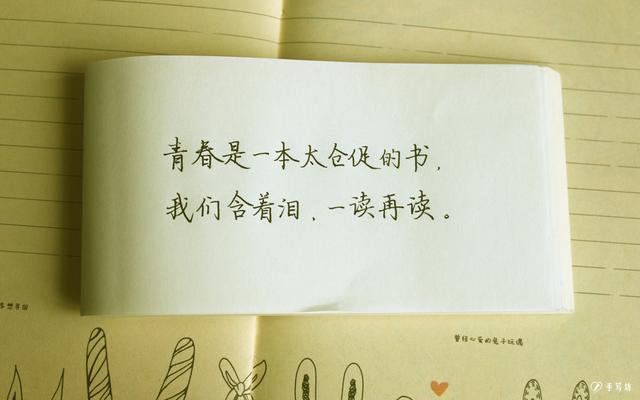 青春是一本太仓促的书,
我们含着泪、一读再读。
曾经心安的兔子玩偶
手写炼